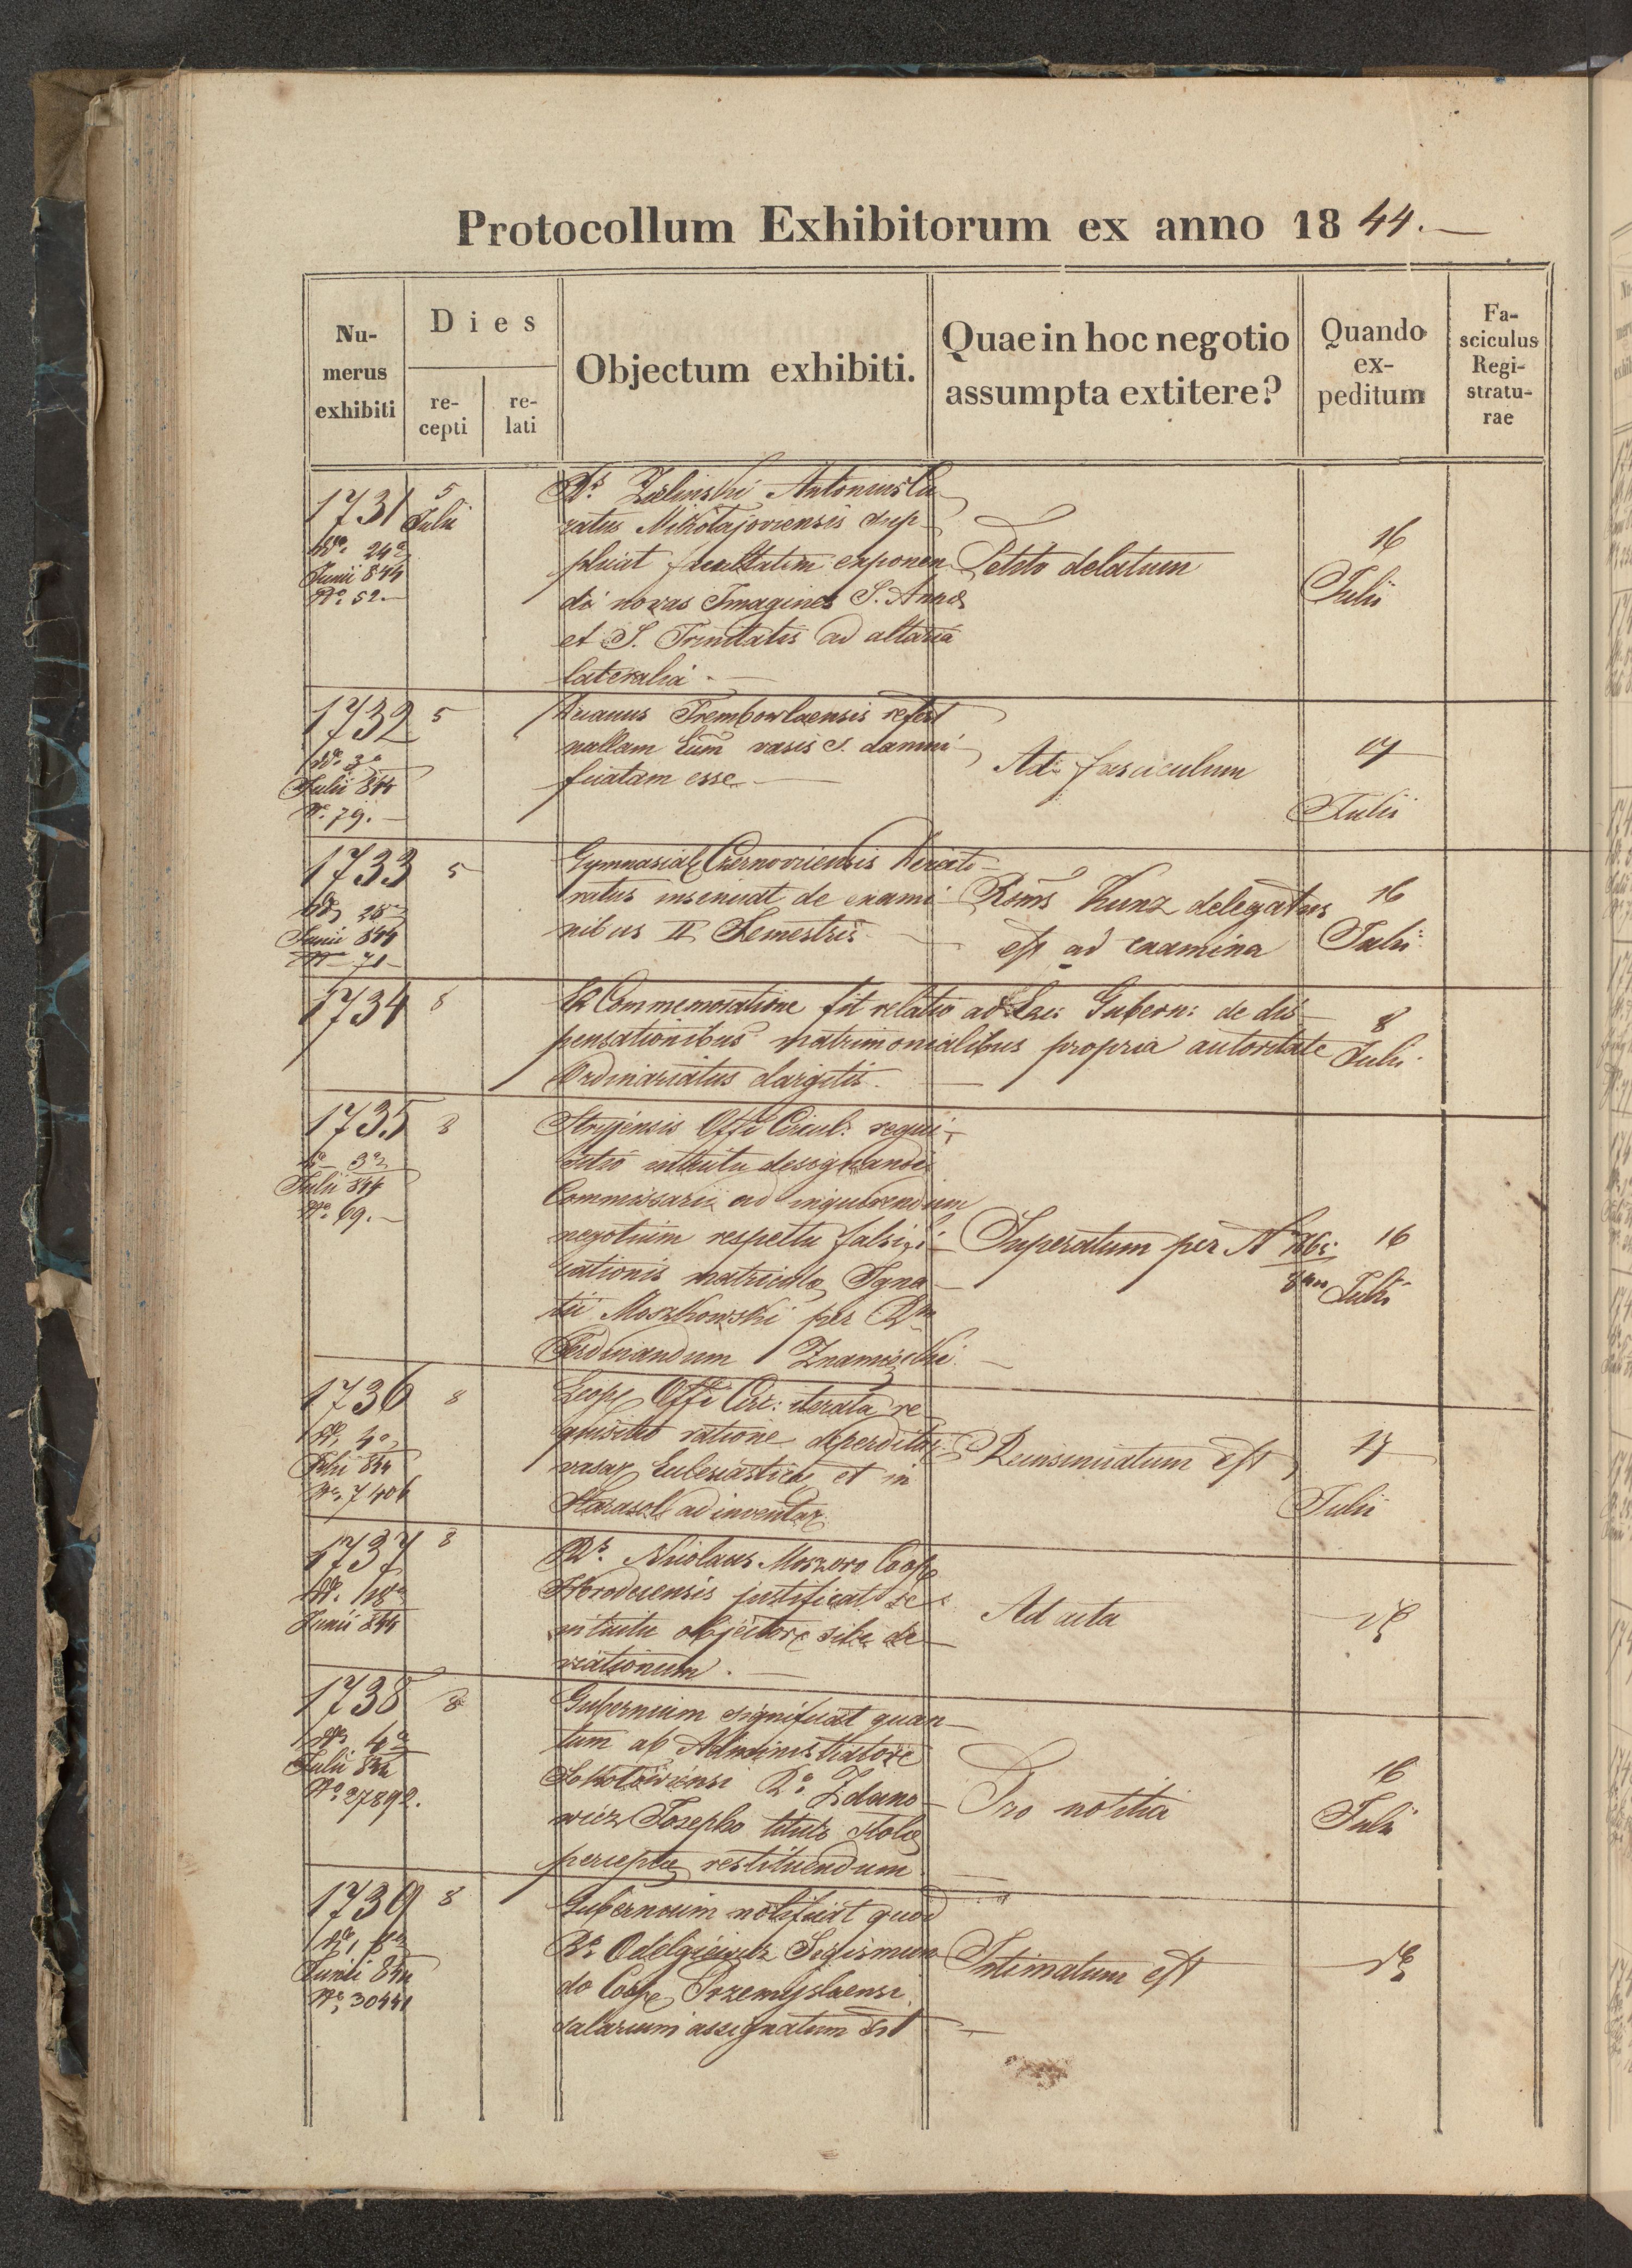 Protocollum Exhibitorum ex anno 1844.
Nu-
merus
exhibiti
Dies
re-
cepti
re-
lati
Objectum exhibiti.
Quae in hoc negotio
assumpta extitere?
Quando
ex-
peditum
Fa-
sciculus
Regi-
stratu-
rae
1731
5
Julii
24
Junii 844
No. 52.
Rs. Zielinski Antonius Cu
ratus Mikołajoviensis sup
plicat facultatem exponen
di novas Imagines S. Annæ
et S. Trinitatis ad altaria
lateralia.
Petito delatum
16
Julii
1732
5
3
Julii 844
No. 79.
Decanus Trembowlaensis refert
nullam Eccm vasis s. damni
ficatam esse
Ad fasciculum
17
Julii
1733
5
28
Junii 844
No 71
Gymnasial Czernoviensis
insinuat de exami
nibus II Semestris
Rdms Kunz delegatus
est ad examina
16
Julii
1734
8
Ex Commemoratione fit relatio ad Exc: Gubern: de dis
pensationibus matrimonialibus propria autoritate
Ordinariatus largitis.
8
Julii
1735
8
3
Julii 844
No. 69.
Stryjensis Offi Circul: requi
sitio intuitu designandi
Commissarii ad inquirendum
negotium respectu falsifi
cationis matriculæ Igna
tii Moszkowski per Rm
Ferdinandum Znamirowski
Superatum per N
844
16
Julii
1736
8
4
Julii 844
No. 7406
Leop Offi Circ: iterata re
quisitio ratione deperditor
vasor Ecclesiastico et in
Starasol adinventor
Reinsinuatum est
17
Julii
1737
8
18
Junii 844
Rs. Nicolaus Moszoro Coop
Horodecensis justificat se
intuitu objector sibi de
viationum.
Ad acta
de
1738
8
4
Julii 844
No 27892.
Gubernium significat quan
tum ab Administratore
Sokołoviensi Ro Zdano
wicz Josepho titulo stolæ
perceptæ restituendum
Pro notitia
16
Julii
1739
8
Junii 844
No 30441
Gubernium notificat quod
Ro. Odelgiewicz Sigismun
do Coop Przemyslaensi
salarium assignatum sit
Intimatum est
de